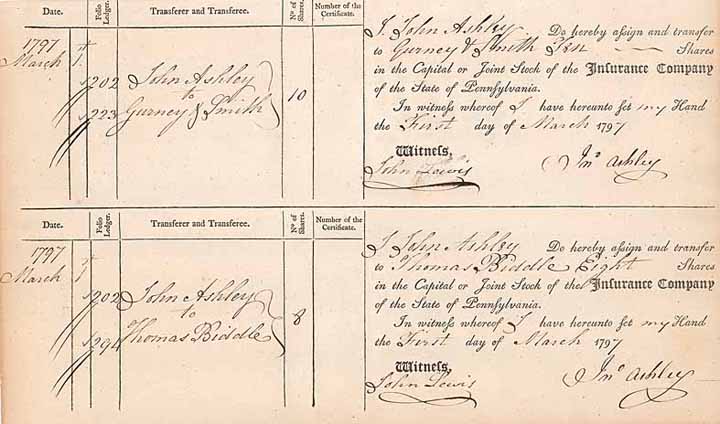 Date. Folio Ledger. Transferer and Transferee. No of Shares. Number of the Certificate.
1797
March 1.
202 John Ashley
to
223 Gurney & Smith 10
I John Ashley Do hereby aſsign and transfer
to Gurney & Smith Ten Shares
in the Capital or Joint Stock of the Insurance Company
of the State of Pennsylvania.
In witneſs whereof I have hereunto ſet my Hand
the First day of March 1797
Witneſs,
John Lewis
Jno Ashley
Date. Folio Ledger. Transferer and Transferee. No of Shares. Number of the Certificate.
1797
March 1
202 John Ashley
to
294 Thomas Biddle 8
I John Ashley Do hereby aſsign and transfer
to Thomas Biddle Eight Shares
in the Capital or Joint Stock of the Insurance Company
of the State of Pennsylvania.
In witneſs whereof I have hereunto ſet my Hand
the First day of March 1797
Witneſs,
John Lewis
Jno Ashley